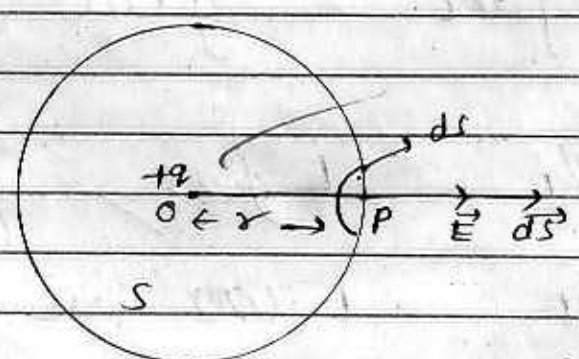 ds
+q
O ← r → P E⃗ ds⃗
S